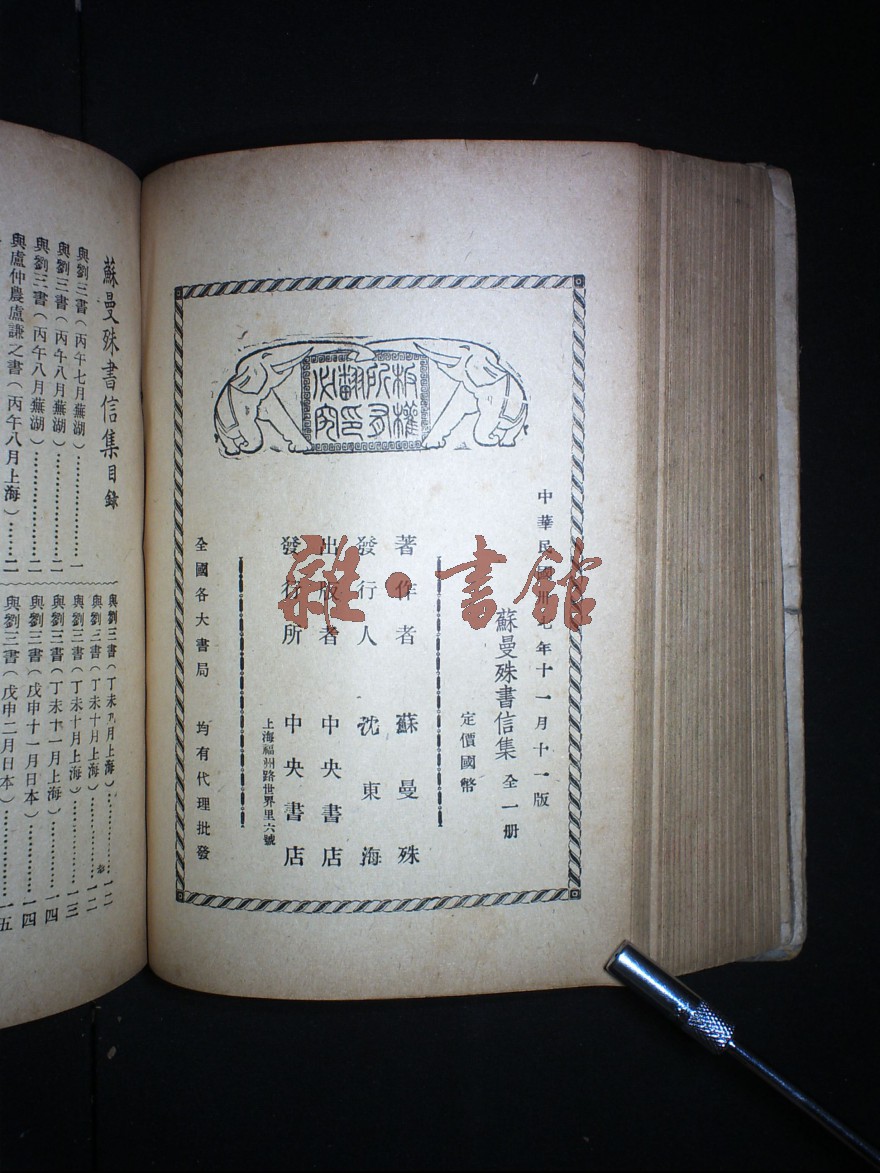 板權所有翻印必究
中華民國卅七年十一月十一版
蘇曼殊書信集 全一册
定價國幣
著作者 蘇曼殊
發行人 沈東海
出版者 中央書店
發行所 中央書店
上海福州路世界里六號
全國各大書局 均有代理批發
雜·書館
蘇曼殊書信集目錄
與劉三書(丙午七月蕪湖)………………一
與劉三書(丙午八月蕪湖)………………二
與劉三書(丙午八月蕪湖)………………二
與盧仲農盧謙之書(丙午八月上海)……二
與劉三書(丁未九月上海)………一二
與劉三書(丁未十月上海)………一二
與劉三書(丁未十月上海)………一三
與劉三書(丁未十一月上海)……一四
與劉三書(戊申十一月日本)……一四
與劉三書(戊申二月日本)………一五